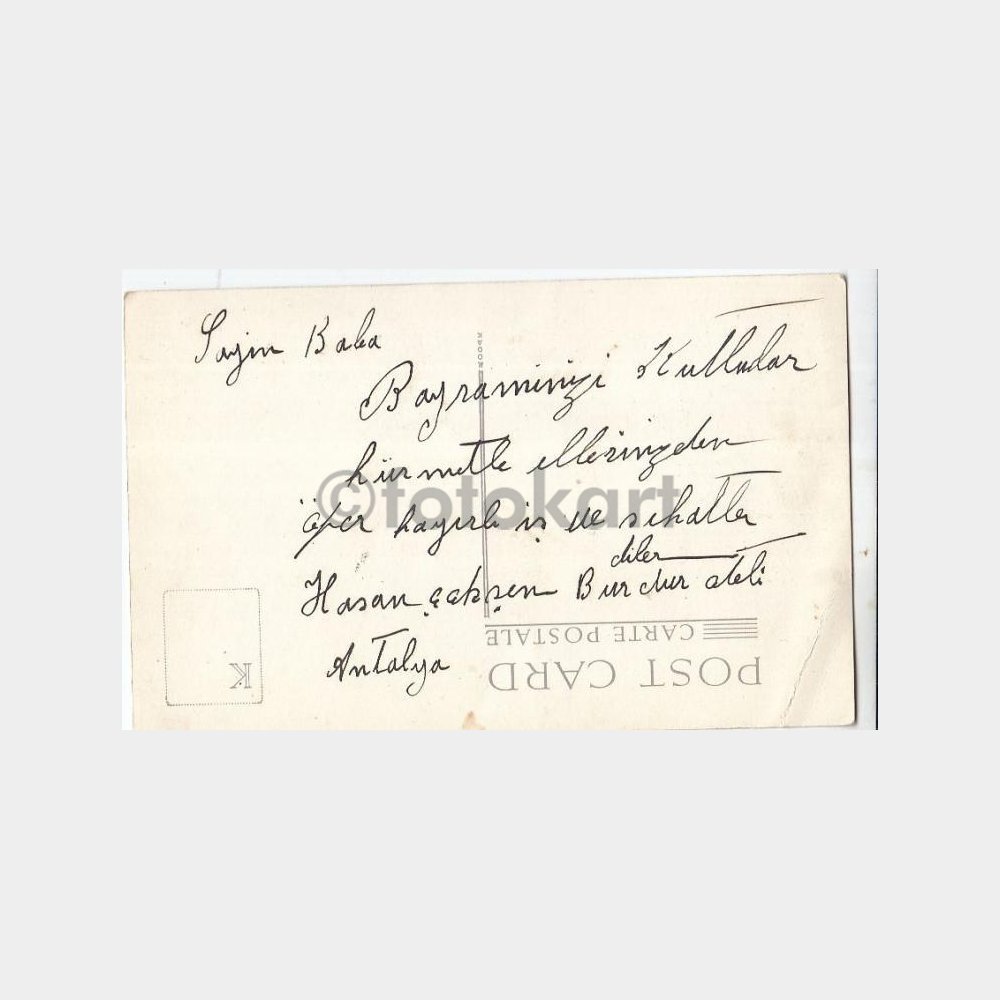 Sayın Baba
Bayramınızı Kutlular
hürmetle ellerinizden
öper hayırlı iş ve sıhatler
diler
Hasan Burdur oteli
Antalya
©fotokart
CARTE POSTALE
POST CARD
K